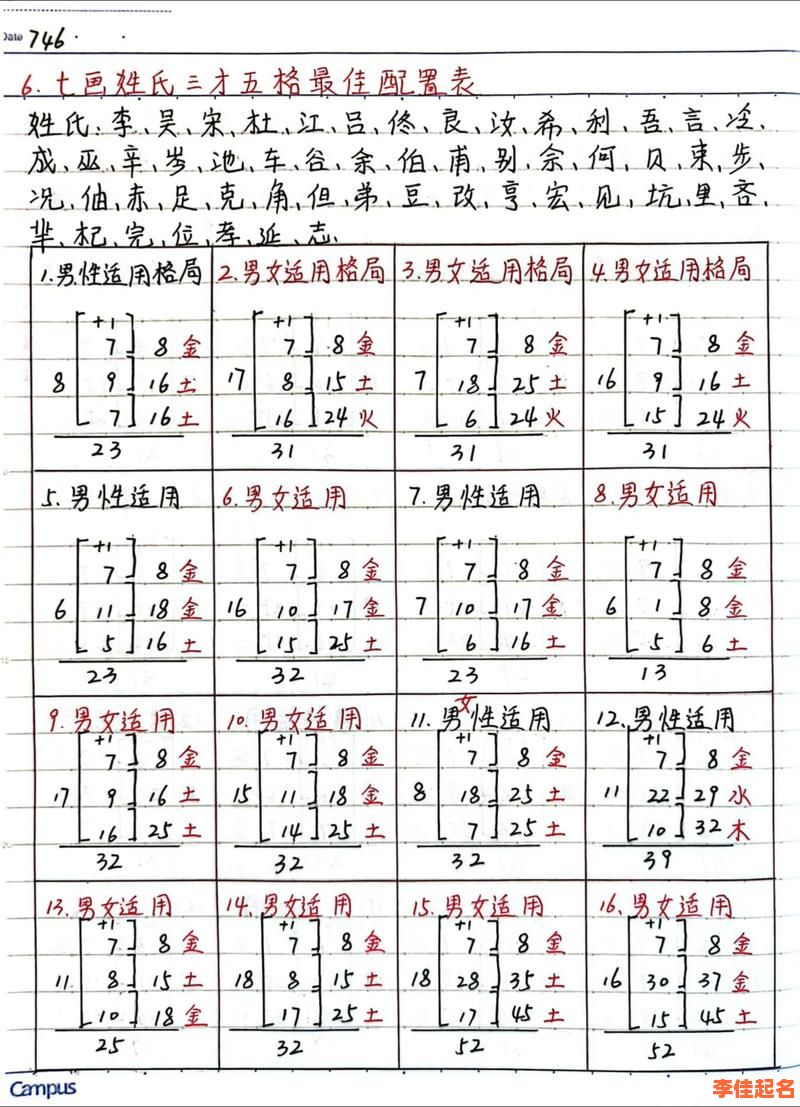 Date 746
6.七画姓氏三才五格最佳配置表
姓氏:李、吴、宋、杜、江、吕、佟、良、汝、希、利、吾、言、冷、
成、巫、辛、岑、池、车、谷、余、伯、甫、别、佘、何、贝、束、步、
况、伷、赤、足、克、角、但、弟、豆、改、亨、宏、见、坑、里、吝、
芈、杞、完、位、孝、延、志、
1.男性适用格局 2.男女适用格局 3.男女适用格局 4.男女适用格局
+1 +1 +1 +1
7 8 金 7 8 金 7 8 金 7 8 金
8 9 16 土 17 8 15 土 7 18 25 土 16 9 16 土
7 16 土 16 24 火 6 24 火 15 24 火
23 31 31 31
5.男性适用 6.男女适用 7.男性适用 8.男女适用
+1 +1 +1 +1
7 8 金 7 8 金 7 8 金 7 8 金
6 11 18 金 16 10 17 金 7 10 17 金 6 1 8 金
5 16 土 15 25 土 6 16 土 5 6 土
23 32 23 13
女
9.男女适用 10.男女适用 11.男性适用 12.男性适用
+1 +1 +1 +1
7 8 金 7 8 金 7 8 金 7 8 金
17 9 16 土 15 11 18 金 8 18 25 土 11 22 29 水
16 25 土 14 25 土 7 25 土 10 32 木
32 32 32 39
13.男女适用 14.男女适用 15.男女适用 16.男女适用
+1 +1 +1 +1
7 8 金 7 8 金 7 8 金 7 8 金
11 8 15 土 18 8 15 土 18 28 35 土 16 30 37 金
10 18 金 17 25 土 17 45 土 15 45 土
25 32 52 52
Campus
李佳起名